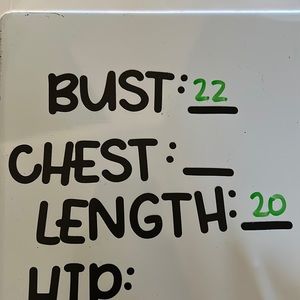 BUST: 22
CHEST: __
LENGTH: 20
HIP: